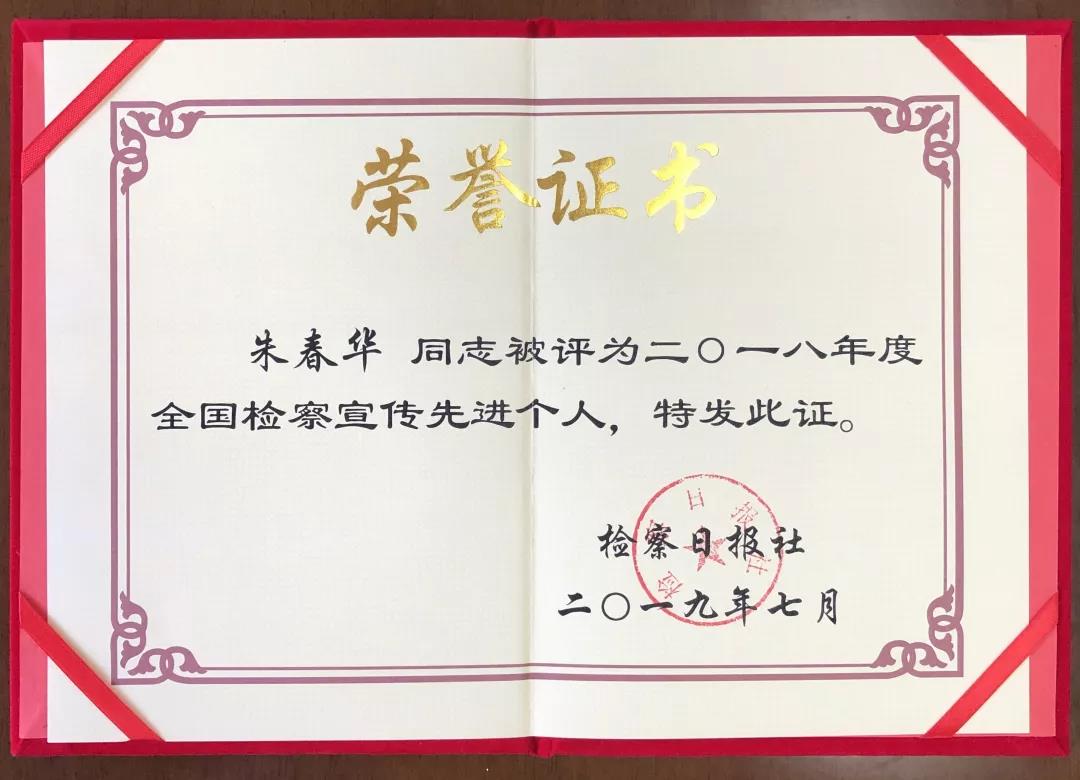 荣誉证书
朱春华 同志被评为二〇一八年度
全国检察宣传先进个人，特发此证。
检察日报社
检察日报社
二〇一九年七月